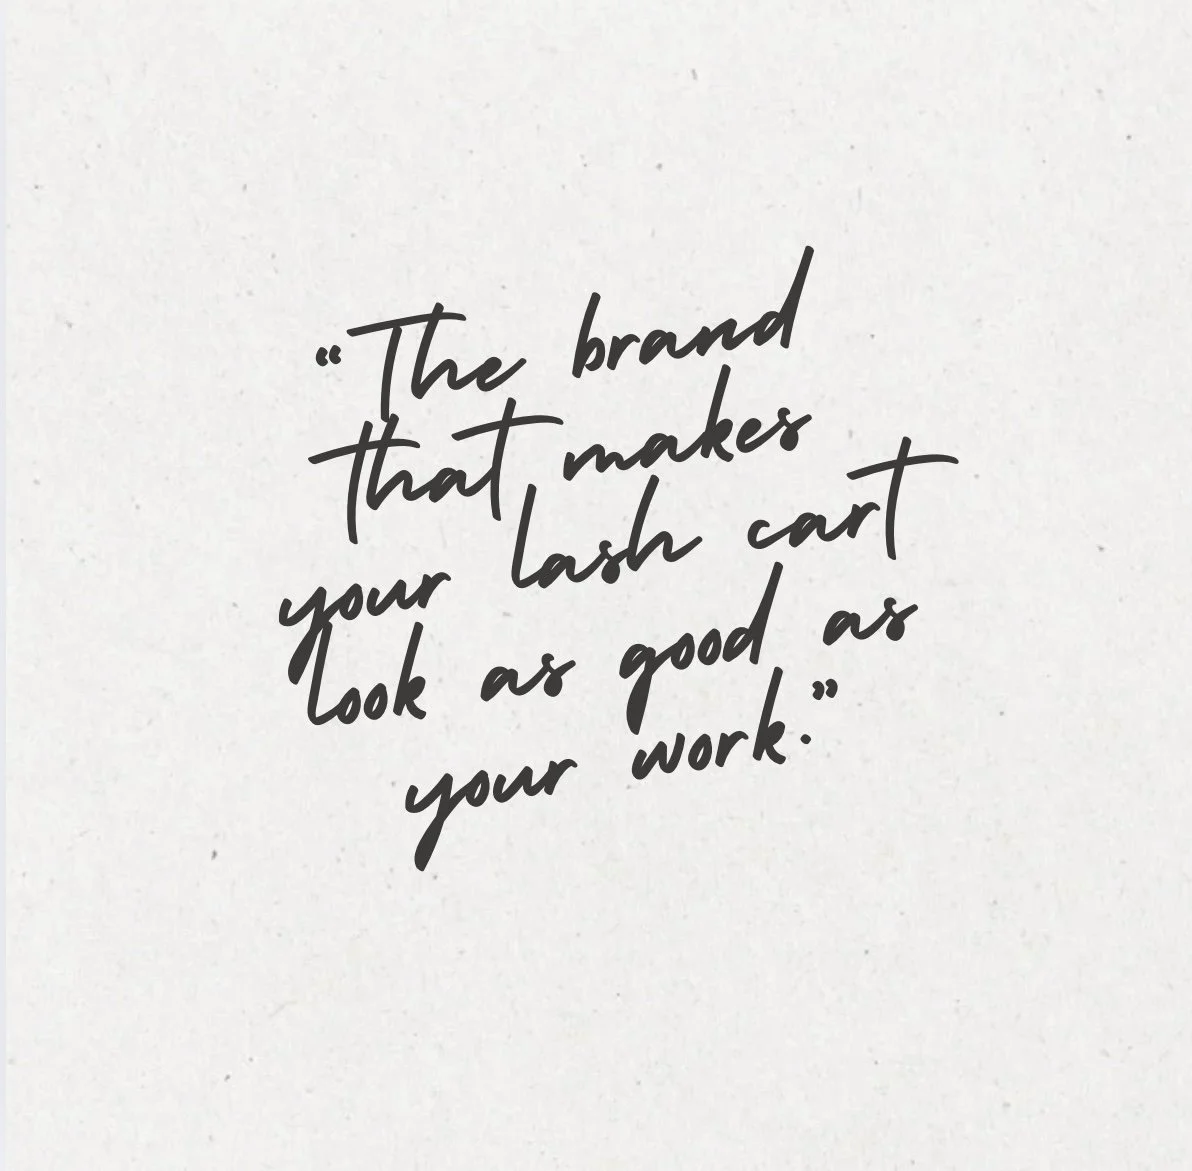 “The brand
that makes
your lash cart
look as good as
your work.”